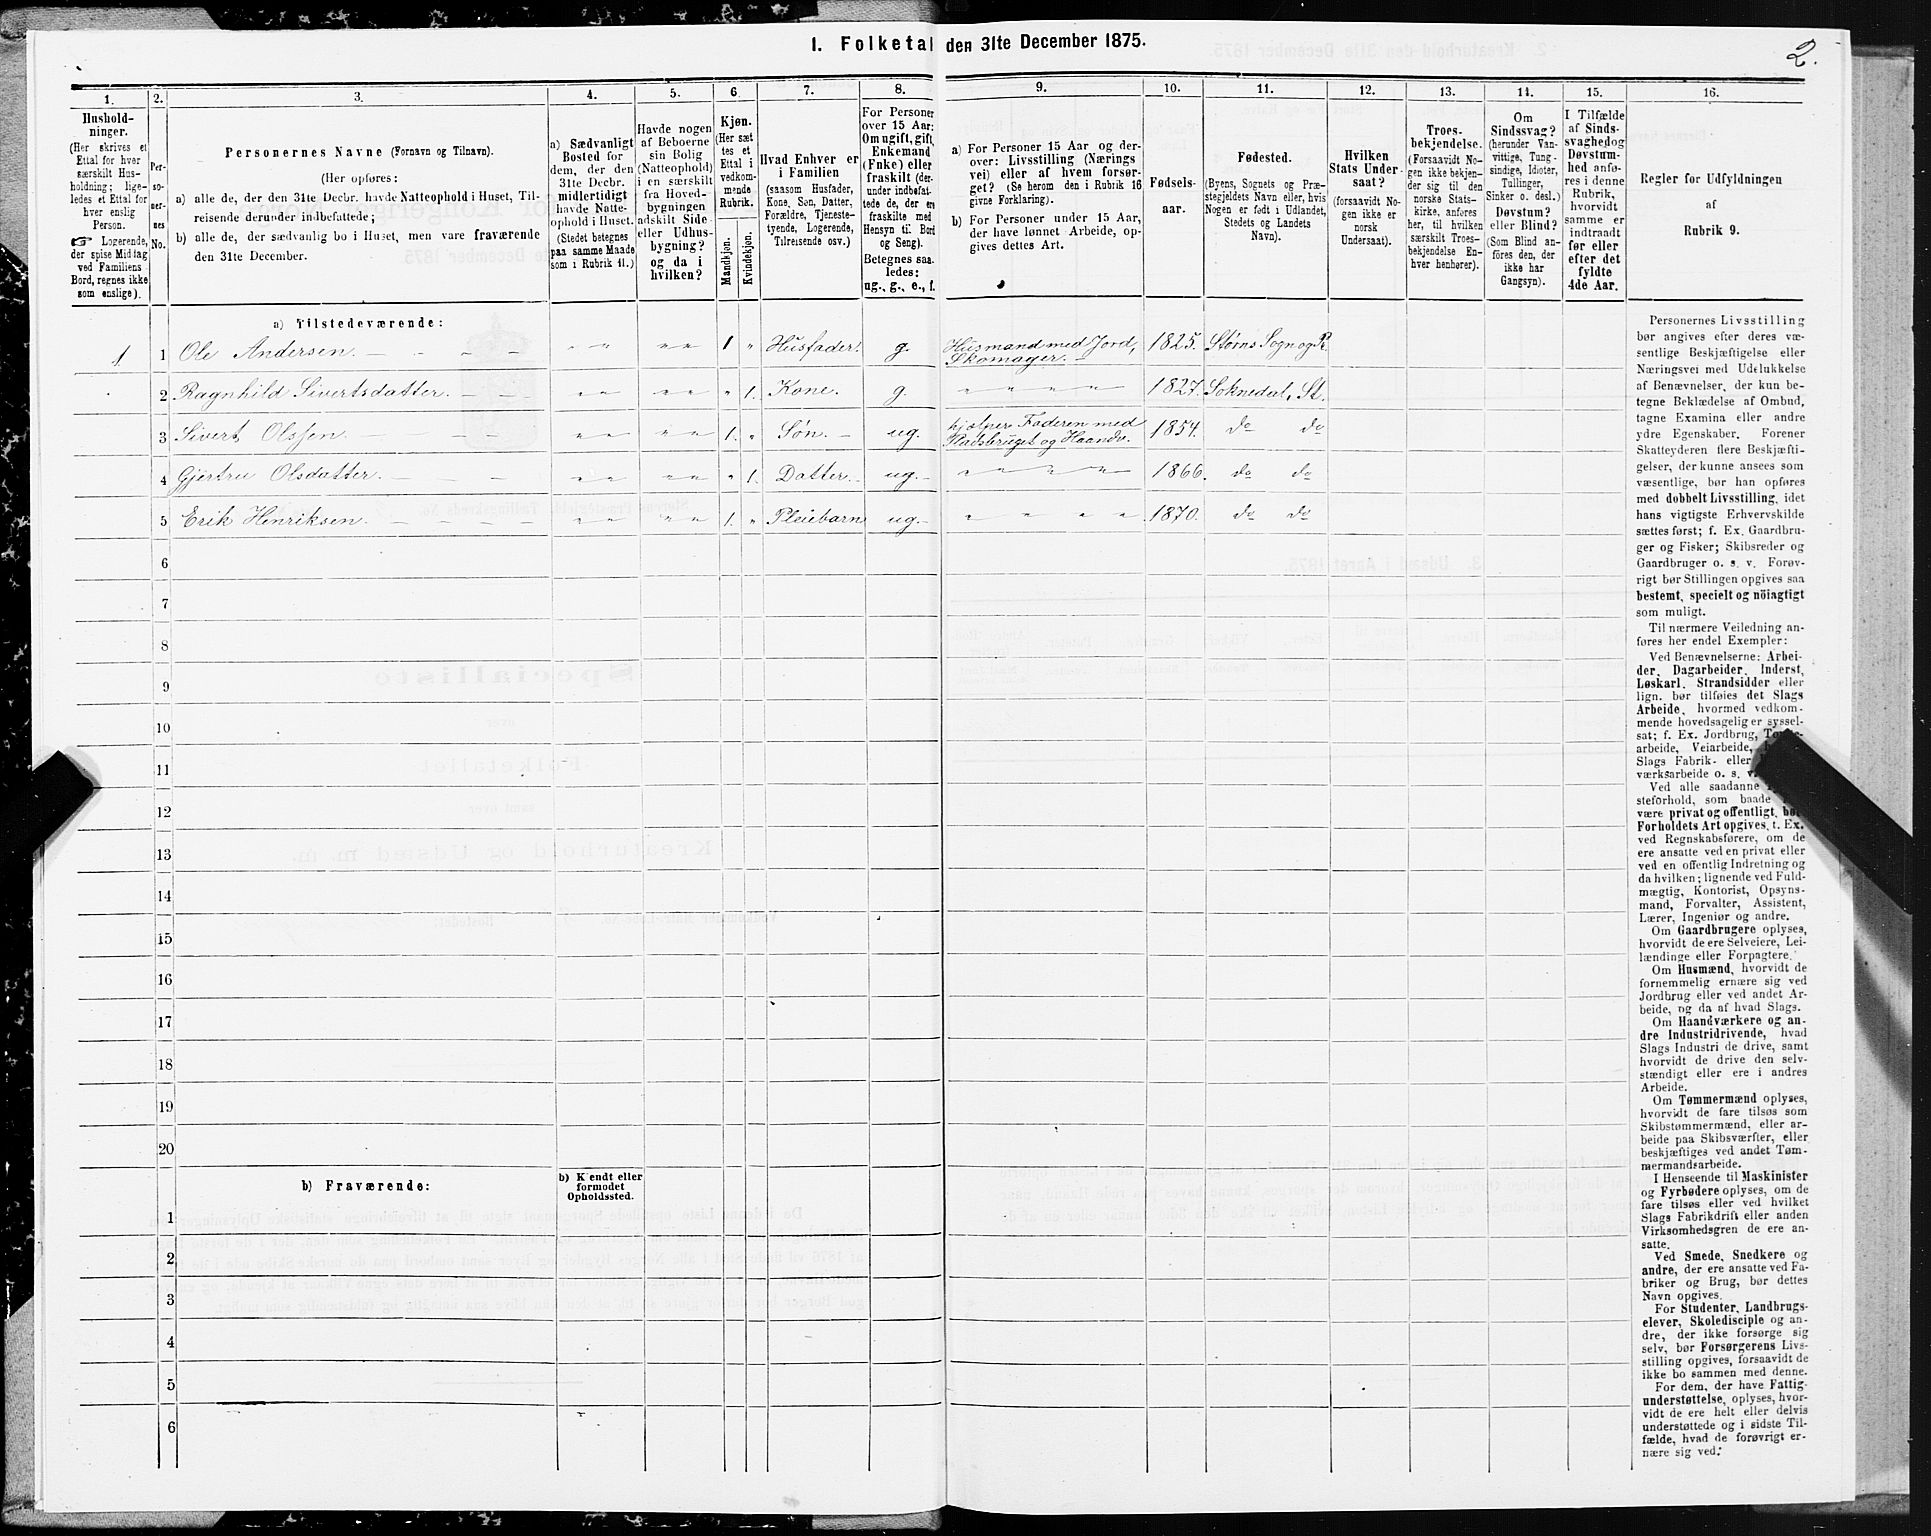 2.
I. Folketal den 31te December 1875.
1. 2. 3. 4. 5. 6. 7. 8. 9. 10. 11. 12. 13. 14. 15. 16.
Hushold-
ninger.
(Her skrives et
Ettal for hver
særskilt Hus-
holdning; lige-
ledes et Ettal for
hver enslig
Person.
☞ Logerende,
der spise Middag
ved Familiens
Bord, regnes ikke
som enslige).
Per-
so-
ner-
nes
No.
Personernes Navne (Fornavn og Tilnavn).
(Her opføres:
a) alle de, der den 31te Decbr. havde Natteophold i Huset, Til-
reisende derunder indbefattede;
b) alle de, der sædvanlig bo i Huset, men vare fraværende
den 31te December.
a) Sædvanligt
Bosted for
dem, der den
31te Decbr.
midlertidigt
havde Natte-
ophold i Huset.
(Stedet betegnes
paa samme Maade
som i Rubrik 11.)
Havde nogen
af Beboerne
sin Bolig
(Natteophold)
i en særskilt
fra Hoved-
bygningen
adskilt Side-
eller Udhus-
bygning?
og da i
hvilken?
Kjøn.
(Her sæt-
tes et
Ettal i
vedkom-
mende
Rubrik.
Mandkjøn.
Kvindekjøn.
Hvad Enhver er
i Familien
(saasom Husfader,
Kone, Søn, Datter,
Forældre, Tjeneste-
tyende, Logerende,
Tilreisende osv.)
For Personer
over 15 Aar:
Om ugift, gift,
Enkemand
(Enke) eller
fraskilt (der-
under indbefat-
tede de, der ere
fraskilte med
Hensyn til Bord
og Seng).
Betegnes saa-
ledes:
ug., g., e., f.
a) For Personer 15 Aar og der-
over: Livsstilling (Nærings-
vei) eller af hvem forsør-
get? (Se herom den i Rubrik 16
givne Forklaring).
b) For Personer under 15 Aar,
der have lønnet Arbeide, op-
gives dettes Art.
Fødsels-
aar.
Fødested.
(Byens, Sognets og Præ-
stegjeldets Navn eller, hvis
Nogen er født i Udlandet,
Stedets og Landets
Navn).
Hvilken
Stats Under-
saat?
(forsaavidt No-
gen ikke er
norsk
Undersaat).
Troes-
bekjendelse.
(Forsaavidt No-
gen ikke bekjen-
der sig til den
norske Stats-
kirke, anføres
her, til hvilken
særskilt Troes-
bekjendelse En-
hver henhører).
Om
Sindssvag?
(herunder Van-
vittige, Tung-
sindige, Idioter,
Tullinger,
Sinker o. desl.)
Døvstum?
eller Blind?
(Som Blind an-
føres den, der
ikke har
Gangsyn).
I Tilfælde
af Sinds-
svaghed og
Døvstum-
hed anfø-
res i denne
Rubrik,
hvorvidt
samme er
indtraadt
før eller
efter det
fyldte
4de Aar.
Regler for Udfyldningen
af
Rubrik 9.
a) Tilstedeværende:
1 1 Ole Andersen. 1 Husfader. g. Husmand med Jord, Skomager. 1825. Störns Sogn og P.
2 Ragnhild Sivertsdatter. 1. Kone. g. 1827. Soknedal, St.
3 Sivert Olssen. 1. Søn. ug. hjælper Faderen med Pladsbruget og Haandv. 1854. do do
4 Gjertru Olsdatter. 1. Datter. ug. 1866. do do
5 Erik Henriksen. 1. Pleiebarn ug. 1870. do do
6
7
8
9
10
11
12
13
14
15
16
17
18
19
20
b) Fraværende:
b) Kjendt eller
formodet
Opholdssted.
1
2
3
4
5
6
Personernes Livsstilling
bør angives efter deres væ-
sentlige Beskjæftigelse eller
Næringsvei med Udelukkelse
af Benævnelser, der kun be-
tegne Beklædelse af Ombud,
tagne Examina eller andre
ydre Egenskaber. Forener
Skatteyderen flere Beskjæfti-
gelser, der kunne ansees som
væsentlige, bør han opføres
med dobbelt Livsstilling, idet
hans vigtigste Erhvervskilde
sættes først; f. Ex. Gaardbru-
ger og Fisker; Skibsreder og
Gaardbruger o. s. v. Forøv-
rigt bør Stillingen opgives saa
bestemt, specielt og nöiagtigt
som muligt.
Til nærmere Veiledning an-
føres her endel Exempler:
Ved Benævnelserne: Arbei-
der, Dagarbeider, Inderst,
Løskarl, Strandsidder eller
lign. bør tilføies det Slags
Arbeide, hvormed vedkom-
mende hovedsagelig er syssel-
sat; f. Ex. Jordbrug,
arbeide, Veiarbeide,
Slags Fabrik- eller
værksarbeide o. s. v.
Ved alle saadanne
steforhold, som baade
være privat og offentligt, bør
Forholdets Art opgives, t. Ex.
ved Regnskabsførere, om de
ere ansatte ved en privat eller
ved en offentlig Indretning og
da hvilken; lignende ved Fuld-
mægtig, Kontorist, Opsyns-
mand, Forvalter, Assistent,
Lærer, Ingeniør og andre.
Om Gaardbrugere oplyses,
hvorvidt de ere Selveiere, Lei-
lændinge eller Forpagtere.
Om Husmænd, hvorvidt de
fornemmelig ernære sig ved
Jordbrug eller ved andet Ar-
beide, og da af hvad Slags.
Om Haandværkere og an-
dre Industridrivende, hvad
Slags Industri de drive, samt
hvorvidt de drive den selv-
stændigt eller ere i andres
Arbeide.
Om Tømmermænd oplyses,
hvorvidt de fare tilsøs som
Skibstømmermænd, eller ar-
beide paa Skibsværfter, eller
beskjæftiges ved andet Tøm-
mermandsarbeide.
I Henseende til Maskinister
og Fyrbødere oplyses, om de
fare tilsøs eller ved hvilket
Slags Fabrikdrift eller anden
Virksomhedsgren de ere an-
satte.
Ved Smede, Snedkere og
andre, der ere ansatte ved Fa-
briker og Brug, bør dettes
Navn opgives.
For Studenter, Landbrugs-
elever, Skoledisciple og an-
dre, der ikke forsørge sig
selv, bør Forsørgerens Livs-
stilling opgives, forsaavidt de
ikke bo sammen med denne.
For dem, der have Fattig-
understøttelse, oplyses, hvor-
vidt de ere helt eller delvis
understøttede og i sidste Til-
fælde, hvad de forøvrigt er-
nære sig ved.